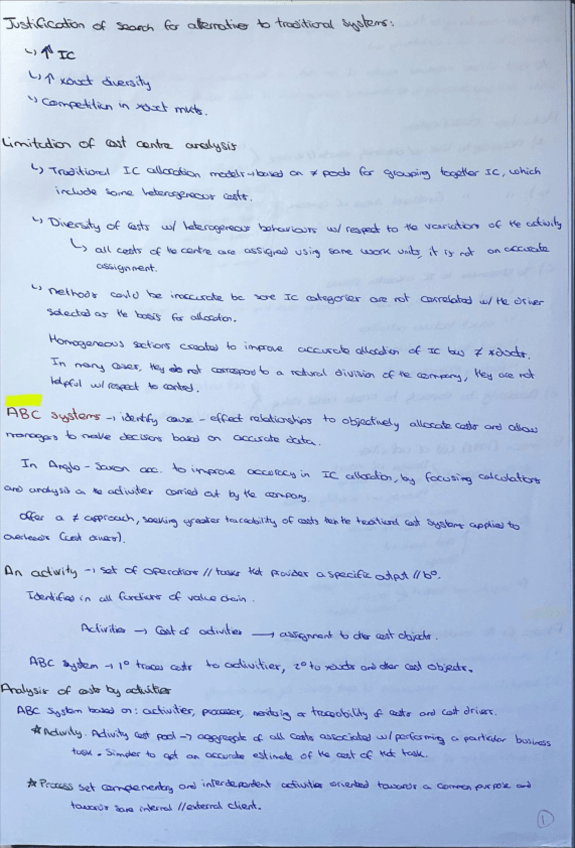 Justification of search for alternatives to traditional systems:
↳ ↑ IC
↳ ↑ xduct diversity
↳ Competition in xduct mkts.
Limitation of cost centre analysis
↳ Traditional IC allocation models → based on ≠ pools for grouping together IC, which
include some heterogeneous costs.
↳ Diversity of costs w/ heterogeneous behaviours w/ respect to the variations of the activity
↳ all costs of the centre are assigned using same work units, it is not an accurate
assignment.
↳ Methods could be inaccurate bc some IC categories are not correlated w/ the driver
selected as the basis for allocation.
Homogeneous sections created to improve accurate allocation of IC ≠ xducts.
In many cases, they do not correspond to a natural division of the company, they are not
helpful w/ respect to control.
ABC systems → identify cause - effect relationships to objectively allocate costs and allow
managers to make decisions based on accurate data.
In Anglo - Saxon acc. to improve accuracy in IC allocation, by focusing calculations
and analysis on the activities carried out by the company.
Offer a ≠ approach, seeking greater traceability of costs than the traditional cost systems applied to
overheads (cost drivers).
An activity → set of operations // tasks that provides a specific output // bº.
Identified in all functions of value chain.
Activities → Cost of activities → assignment to other cost objects.
ABC system → 1º traces costs to activities, 2º to xducts and other cost objects.
Analysis of costs by activities
ABC System based on: activities, processes, traceability of costs and cost drivers.
★ Activity: Activity cost pool → aggregate of all costs associated w/ performing a particular business
task. Simpler to get an accurate estimate of the cost of that task.
★ Process set complementary and interdependent activities oriented towards a common purpose and
towards same internal // external client.
1